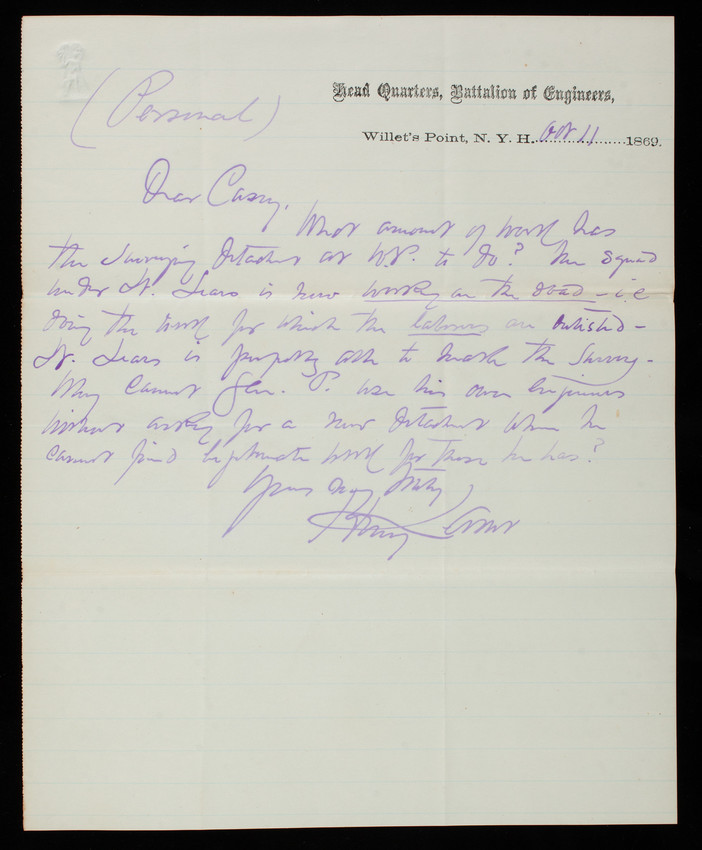 Head Quarters, Battalion of Engineers,
(Personal)
Willet's Point, N. Y. H. Oct 11 1869.
Dear Casey,
What amount of work has
the Surveying Detachmt at W.P. to do? The squad
under Lt. Sears is now working on the road – i.e
doing the work for which the laborers are enlisted –
Lt. Sears is properly ask to mark the Survey –
Why cannot Gen. P. use his own engineers
without asking for a new Detachmt when he
cannot find legitimate work for those he has?
Yours very truly
Henry L Abbot